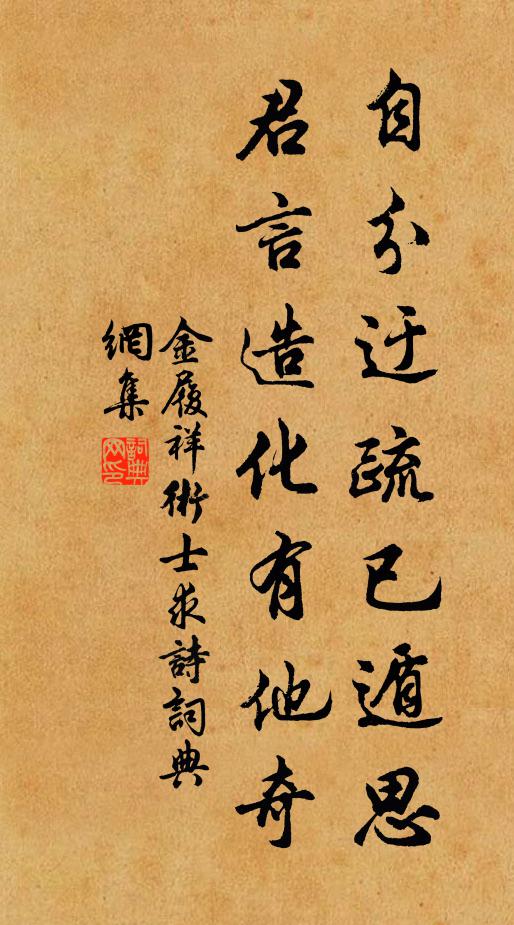 自分迂疏已遁思
君言造化有他奇
金履祥術士求詩詞典
網集
詞典網印